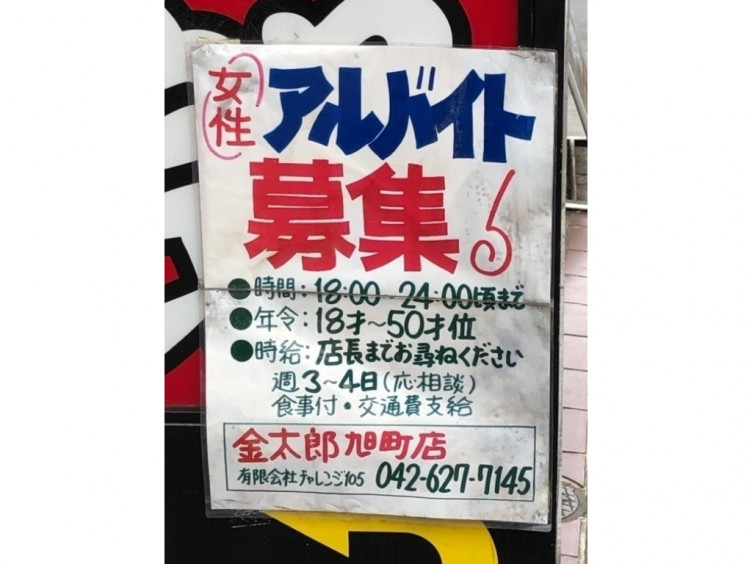 女性 アルバイト
募集
●時間:18:00 24:00頃まで
●年令:18才〜50才位
●時給:店長までお尋ねください
週3〜4日(応相談)
食事付・交通費支給
金太郎旭町店
有限会社チャレンジ105 042-627-7145